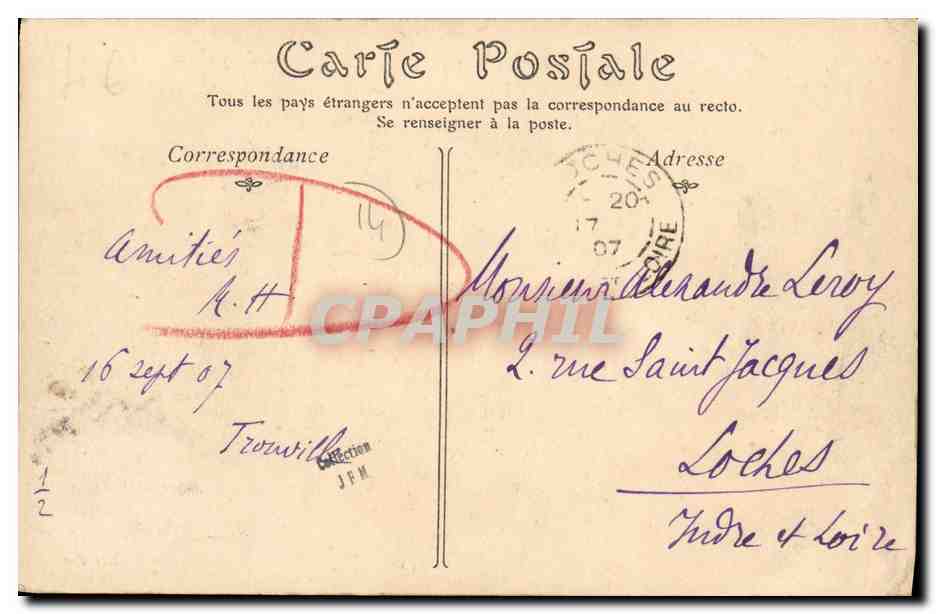 Carte Postale
Tous les pays étrangers n'acceptent pas la correspondance au recto.
Se renseigner à la poste.
Correspondance
Adresse
14
D
Amitiés
16 sept 07
Trouville
Collection
J F M
1/2
OCHES
20
17
07
LOIRE
Monsieur Alexandre Leroy
2. rue Saint Jacques
Loches
Indre & Loire
CPAPHIL